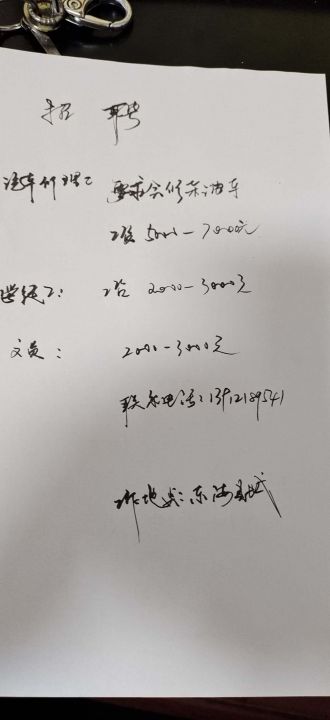 招 聘
汽车修理工 要求会修柴油车
工资 5000-7000元
学徒工: 工资 2000-3000元
文员: 2000-3000元
联系电话: 13912189541
工作地点: 东海县城